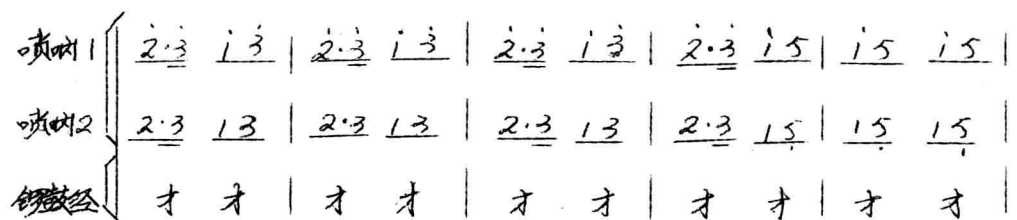 唢呐1 2̇·3̇ 1̇ 3̇ | 2̇·3̇ 1̇ 3̇ | 2̇·3̇ 1̇ 3̇ | 2̇·3̇ 1̇ 5 | 1̇ 5 1̇ 5 |
唢呐2 2·3 1 3 | 2·3 1 3 | 2·3 1 3 | 2·3 1 5̣ | 1 5̣ 1 5̣ |
锣鼓经 才 才 | 才 才 | 才 才 | 才 才 | 才 才 |